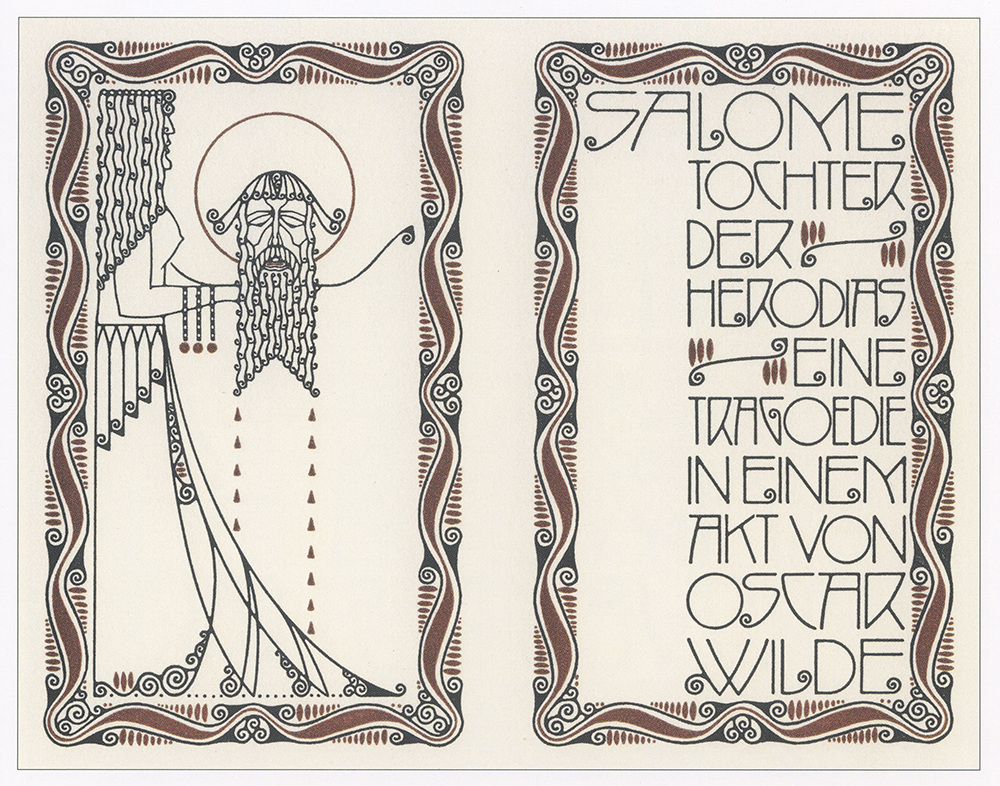 SALOME
TOCHTER
DER
HERODIAS
EINE
TRAGOEDIE
IN EINEM
AKT VON
OSCAR
WILDE